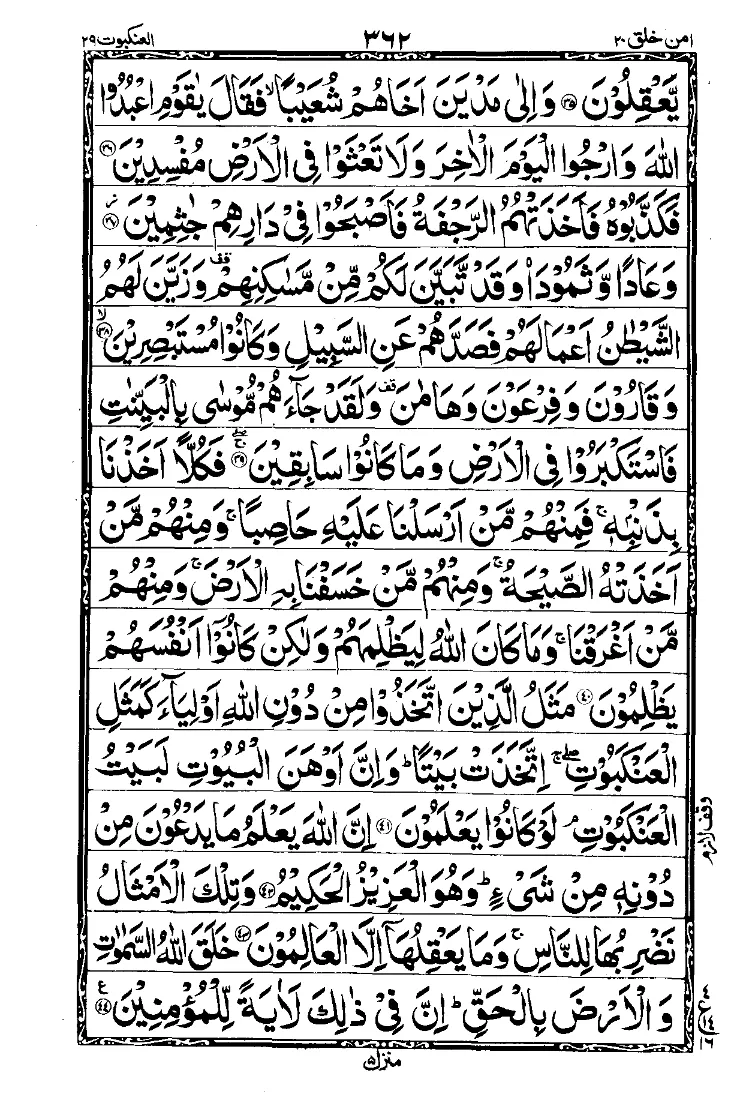 امن خلق ۲۰ ۳۶۲ العنکبوت ۲۹
يَّعۡقِلُوۡنَ ﴿۳۵﴾ وَاِلٰى مَدۡيَنَ اَخَاهُمۡ شُعَيۡبًا ۙ فَقَالَ يٰقَوۡمِ اعۡبُدُوا
اللّٰهَ وَارۡجُوا الۡيَوۡمَ الۡاٰخِرَ وَلَا تَعۡثَوۡا فِى الۡاَرۡضِ مُفۡسِدِيۡنَ ﴿۳۶﴾
فَكَذَّبُوۡهُ فَاَخَذَتۡهُمُ الرَّجۡفَةُ فَاَصۡبَحُوۡا فِىۡ دَارِهِمۡ جٰثِمِيۡنَ ﴿۳۷﴾
وَعَادًا وَّثَمُوۡدَا۟ وَقَدْ تَّبَيَّنَ لَكُمۡ مِّنۡ مَّسٰكِنِهِمۡ قف وَزَيَّنَ لَهُمُ
الشَّيۡطٰنُ اَعۡمَالَهُمۡ فَصَدَّهُمۡ عَنِ السَّبِيۡلِ وَكَانُوۡا مُسۡتَبۡصِرِيۡنَ ۙ‏ ﴿۳۸﴾
وَقَارُوۡنَ وَفِرۡعَوۡنَ وَهَامٰنَ قف وَلَقَدۡ جَآءَهُمۡ مُّوۡسٰى بِالۡبَيِّنٰتِ
فَاسۡتَكۡبَرُوۡا فِى الۡاَرۡضِ وَمَا كَانُوۡا سَابِقِيۡنَ ﴿۳۹﴾ فَكُلًّا اَخَذۡنَا
بِذَنۡۢبِهٖ ۚ فَمِنۡهُمۡ مَّنۡ اَرۡسَلۡنَا عَلَيۡهِ حَاصِبًا ۚ وَمِنۡهُمۡ مَّنۡ
اَخَذَتۡهُ الصَّيۡحَةُ ۚ وَمِنۡهُمۡ مَّنۡ خَسَفۡنَا بِهِ الۡاَرۡضَ ۚ وَمِنۡهُمۡ
مَّنۡ اَغۡرَقۡنَا ۚ وَمَا كَانَ اللّٰهُ لِيَظۡلِمَهُمۡ وَلٰكِنۡ كَانُوۡۤا اَنۡفُسَهُمۡ
يَظۡلِمُوۡنَ ﴿۴۰﴾ مَثَلُ الَّذِيۡنَ اتَّخَذُوۡا مِنۡ دُوۡنِ اللّٰهِ اَوۡلِيَآءَ كَمَثَلِ
الۡعَنۡكَبُوۡتِ ۖۚ اِتَّخَذَتۡ بَيۡتًا ؕ وَاِنَّ اَوۡهَنَ الۡبُيُوۡتِ لَبَيۡتُ
الۡعَنۡكَبُوۡتِ ۘ لَوۡ كَانُوۡا يَعۡلَمُوۡنَ ﴿۴۱﴾ اِنَّ اللّٰهَ يَعۡلَمُ مَا يَدۡعُوۡنَ مِنۡ
وقف لازم
دُوۡنِهٖ مِنۡ شَىۡءٍ ؕ وَهُوَ الۡعَزِيۡزُ الۡحَكِيۡمُ ﴿۴۲﴾ وَتِلۡكَ الۡاَمۡثَالُ
نَضۡرِبُهَا لِلنَّاسِ ۚ وَمَا يَعۡقِلُهَاۤ اِلَّا الۡعَالِمُوۡنَ ﴿۴۳﴾ خَلَقَ اللّٰهُ السَّمٰوٰتِ
وَالۡاَرۡضَ بِالۡحَقِّ ؕ اِنَّ فِىۡ ذٰلِكَ لَاٰيَةً لِّلۡمُؤۡمِنِيۡنَ ﴿۴۴﴾ ع
ع ۱۴ ۱۶
منزل ۵